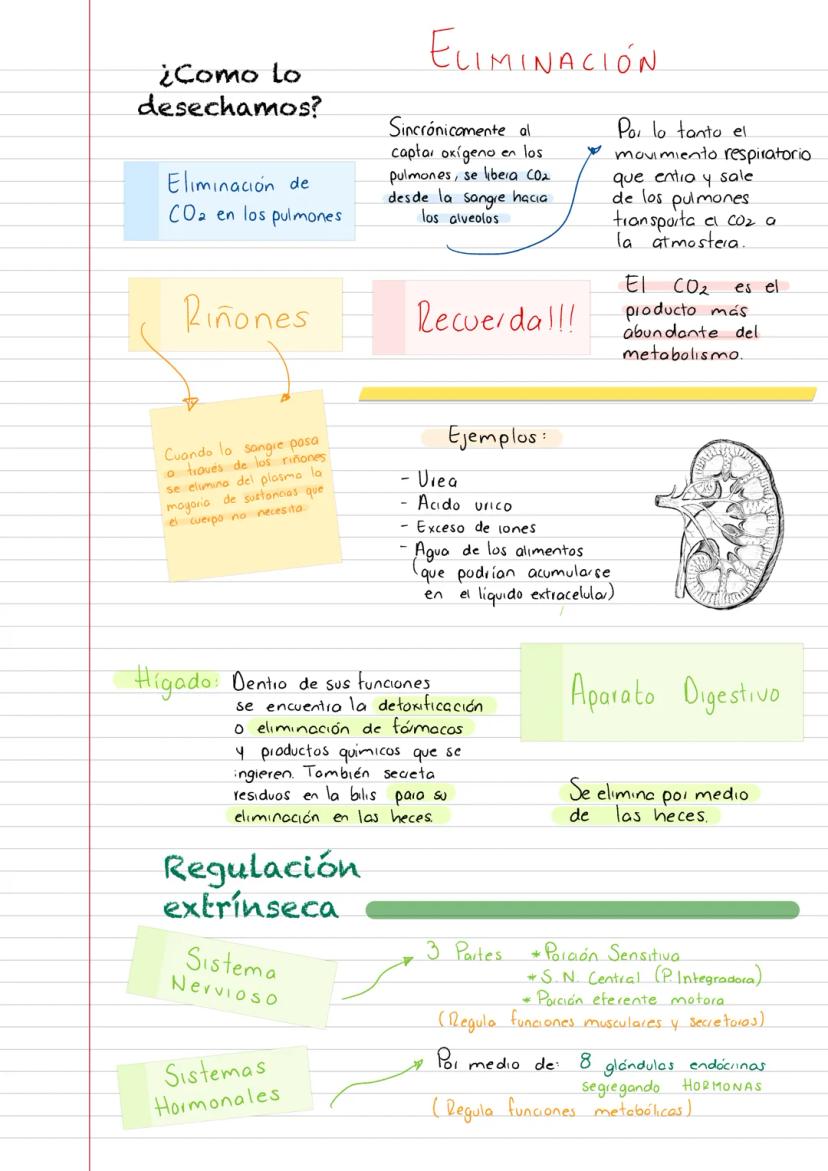 ELIMINACIÓN
¿Como lo
desechamos?
Eliminación de
CO2 en los pulmones
Sincrónicamente al
captar oxígeno en los
pulmones, se libera CO2
desde la sangre hacia
los alveolos
Por lo tanto el
movimiento respiratorio
que entra y sale
de los pulmones
transporta el CO2 a
la atmosfera.
Riñones
Recuerda!!!
El CO2 es el
producto más
abundante del
metabolismo.
Cuando la sangre pasa
a través de los riñones
se elimina del plasma la
mayoría de sustancias que
el cuerpo no necesita.
Ejemplos:
- Urea
- Acido urico
- Exceso de iones
- Agua de los alimentos
(que podrían acumularse
en el líquido extracelular)
Hígado: Dentro de sus funciones
se encuentra la detoxificación
o eliminación de fármacos
y productos químicos que se
ingieren. También secreta
residuos en la bilis para su
eliminación en las heces.
Aparato Digestivo
Se elimina por medio
de las heces.
Regulación
extrínseca
Sistema
Nervioso
3 Partes * Porción Sensitiva
* S.N. Central (P. Integradora)
* Porción eferente motora
(Regula funciones musculares y secretoras)
Sistemas
Hormonales
Por medio de: 8 glándulas endócrinas
segregando HORMONAS
(Regula funciones metabólicas)